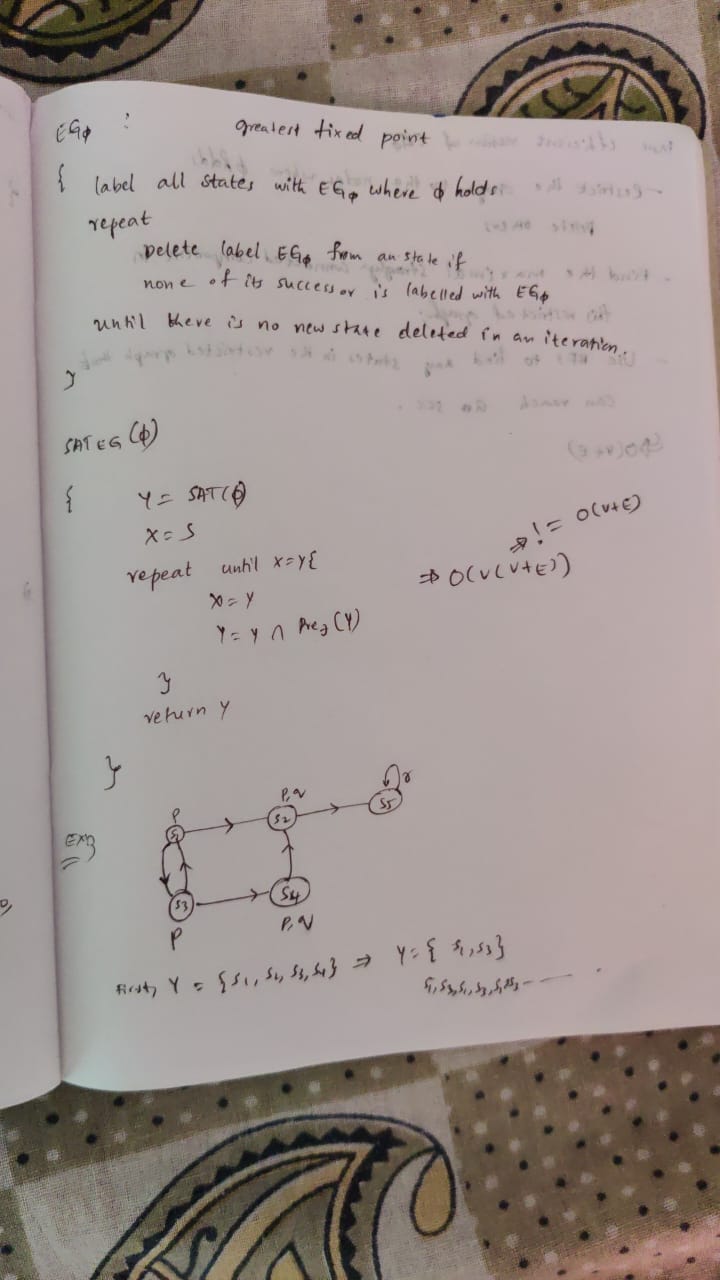 EGφ : greatest fixed point
{ label all states with EGφ where φ holds
repeat
Delete label EGφ from an state if
none of its successor is labelled with EGφ
until there is no new state deleted in an iteration.
}
SATEG (φ)
{ Y = SAT(φ)
X = S
repeat until X=Y{
X = Y
Y = Y ∩ Pre∃ (Y)
}
return Y
}
⇒ != O(V+E)
⇒ O(V(V+E))
P
P,q
r
S1
S2
S5
S3
S4
P
P,q
First, Y = {S1, S2, S3, S4} ⇒ Y = { S1, S3}